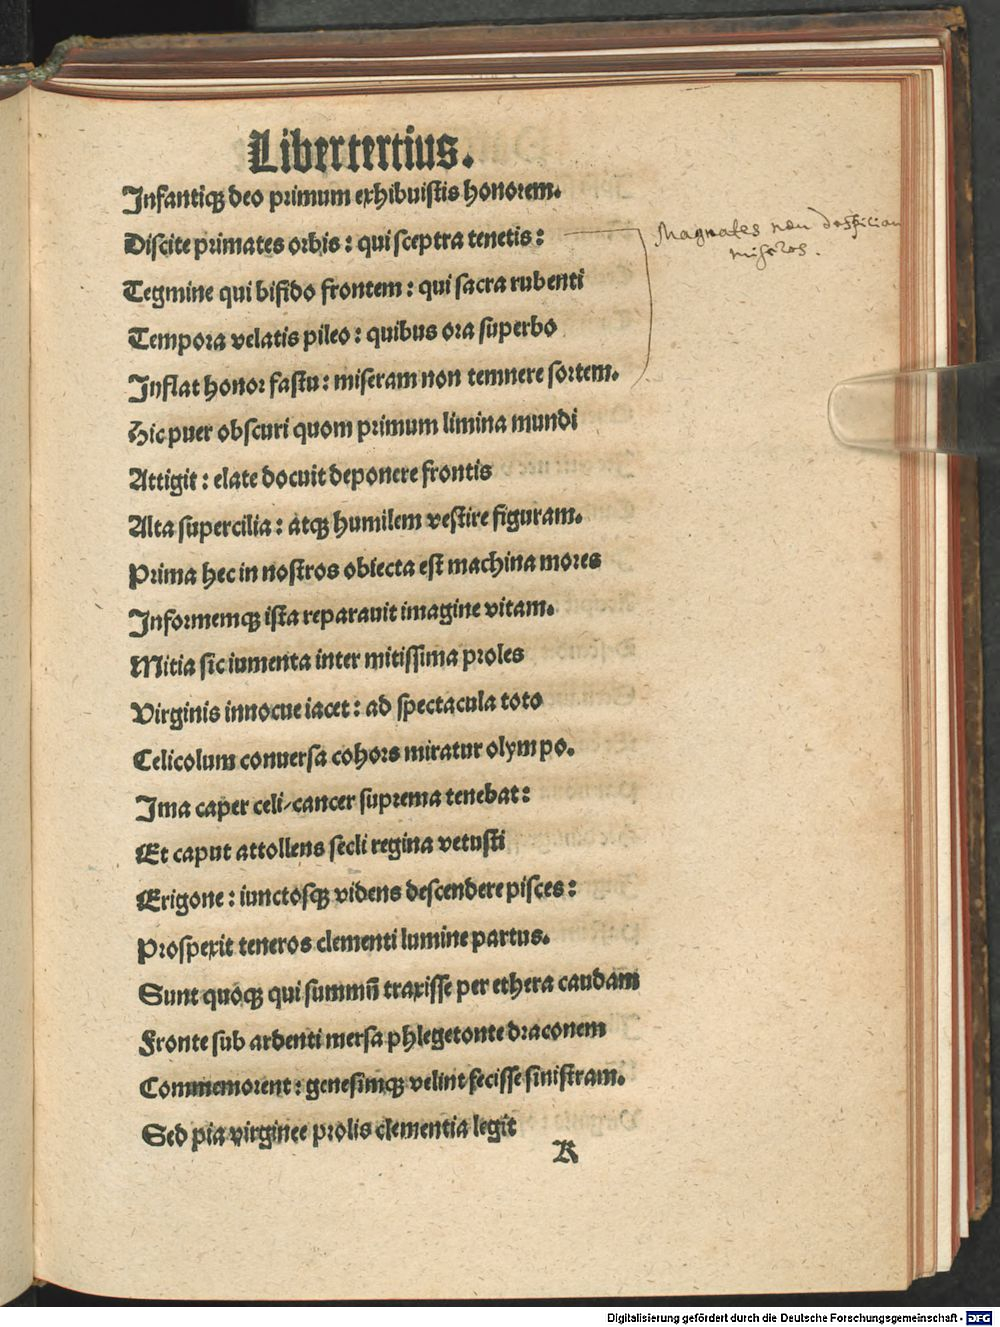 Liber tertius.
Infantiqꝫ deo primum exhibuistis honorem.
Discite primates orbis : qui sceptra tenetis :
Magnates non despician
miseros.
Tegmine qui bifido frontem : qui sacra rubenti
Tempora velatis pileo : quibus ora superbo
Inflat honor fastu : miseram non temnere sortem.
Hic puer obscuri quom primum limina mundi
Attigit : elate docuit deponere frontis
Alta supercilia : atqꝫ humilem vestire figuram.
Prima hec in nostros obiecta est machina mores
Informemqꝫ ista reparauit imagine vitam.
Mitia sic iumenta inter mitissima proles
Virginis innocue iacet : ad spectacula toto
Celicolum conuersa cohors miratur olympo.
Ima caper celi/cancer suprema tenebat :
Et caput attollens secli regina vetusti
Erigone : iunctosqꝫ videns descendere pisces :
Prospexit teneros clementi lumine partus.
Sunt quoqꝫ qui summū traxisse per ethera caudam
Fronte sub ardenti mersa phlegetonte draconem
Commemorent : genesimqꝫ velint fecisse sinistram.
Sed pia virginee prolis clementia legit
K
Digitalisierung gefördert durch die Deutsche Forschungsgemeinschaft - DFG